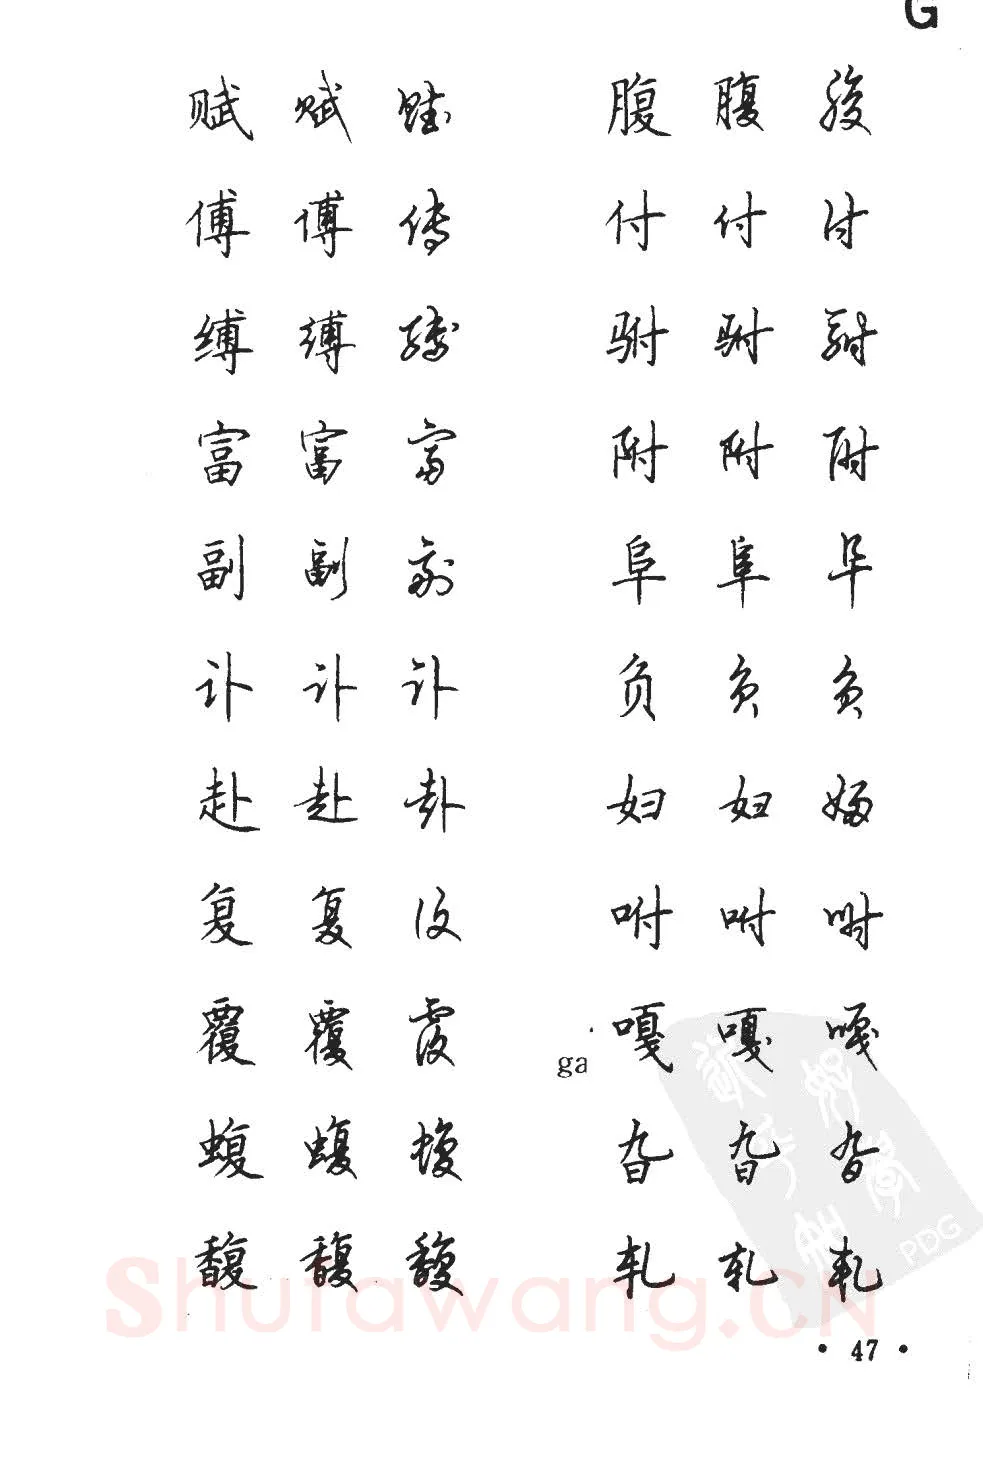 G
赋 赋 赋 腹 腹 腹
傅 傅 傅 付 付 付
缚 缚 缚 驸 驸 驸
富 富 富 附 附 附
副 副 副 阜 阜 阜
讣 讣 讣 负 负 负
赴 赴 赴 妇 妇 妇
复 复 复 咐 咐 咐
覆 覆 覆 ga 嘎 嘎 嘎
蝮 蝮 蝮 旮 旮 旮
馥 馥 馥 轧 轧 轧
Shufawang.CN
PDG
• 47 •